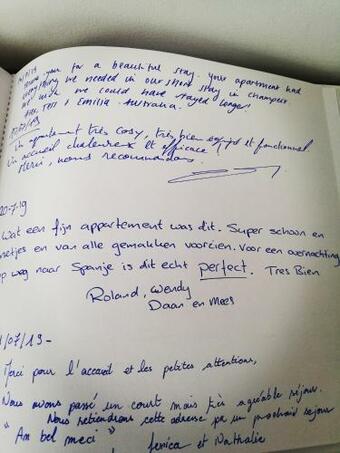 you for a beautiful stay. your apartment had
everything we needed in our short stay in champers
we wish we could have stayed longer
Tess & Emilia. Australia.
Un apartement très cosy, très bien équipé et fonctionnel
Un accueil chaleureux et efficace!
Merci, nous recommandons.
20-7-19
Wat een fijn appartement was dit. Super schoon en
netjes en van alle gemakken voorzien. Voor een overnachting
op weg naar Spanje is dit echt perfect. Tres Bien
Roland, Wendy
Daan en Mees
/07/19-
Merci pour l'accueil et les petites attentions,
Nous avons passé un court mais très agréable séjour.
Nous retiendrons cette adresse pr un prochain séjour
"An bel meci"
et Nathalie